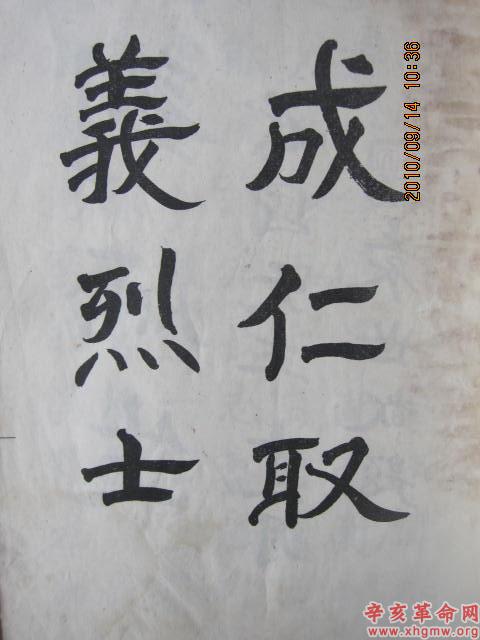 成仁取
義烈士
2010/09/14 10:36
辛亥革命网
www.xhgmw.org